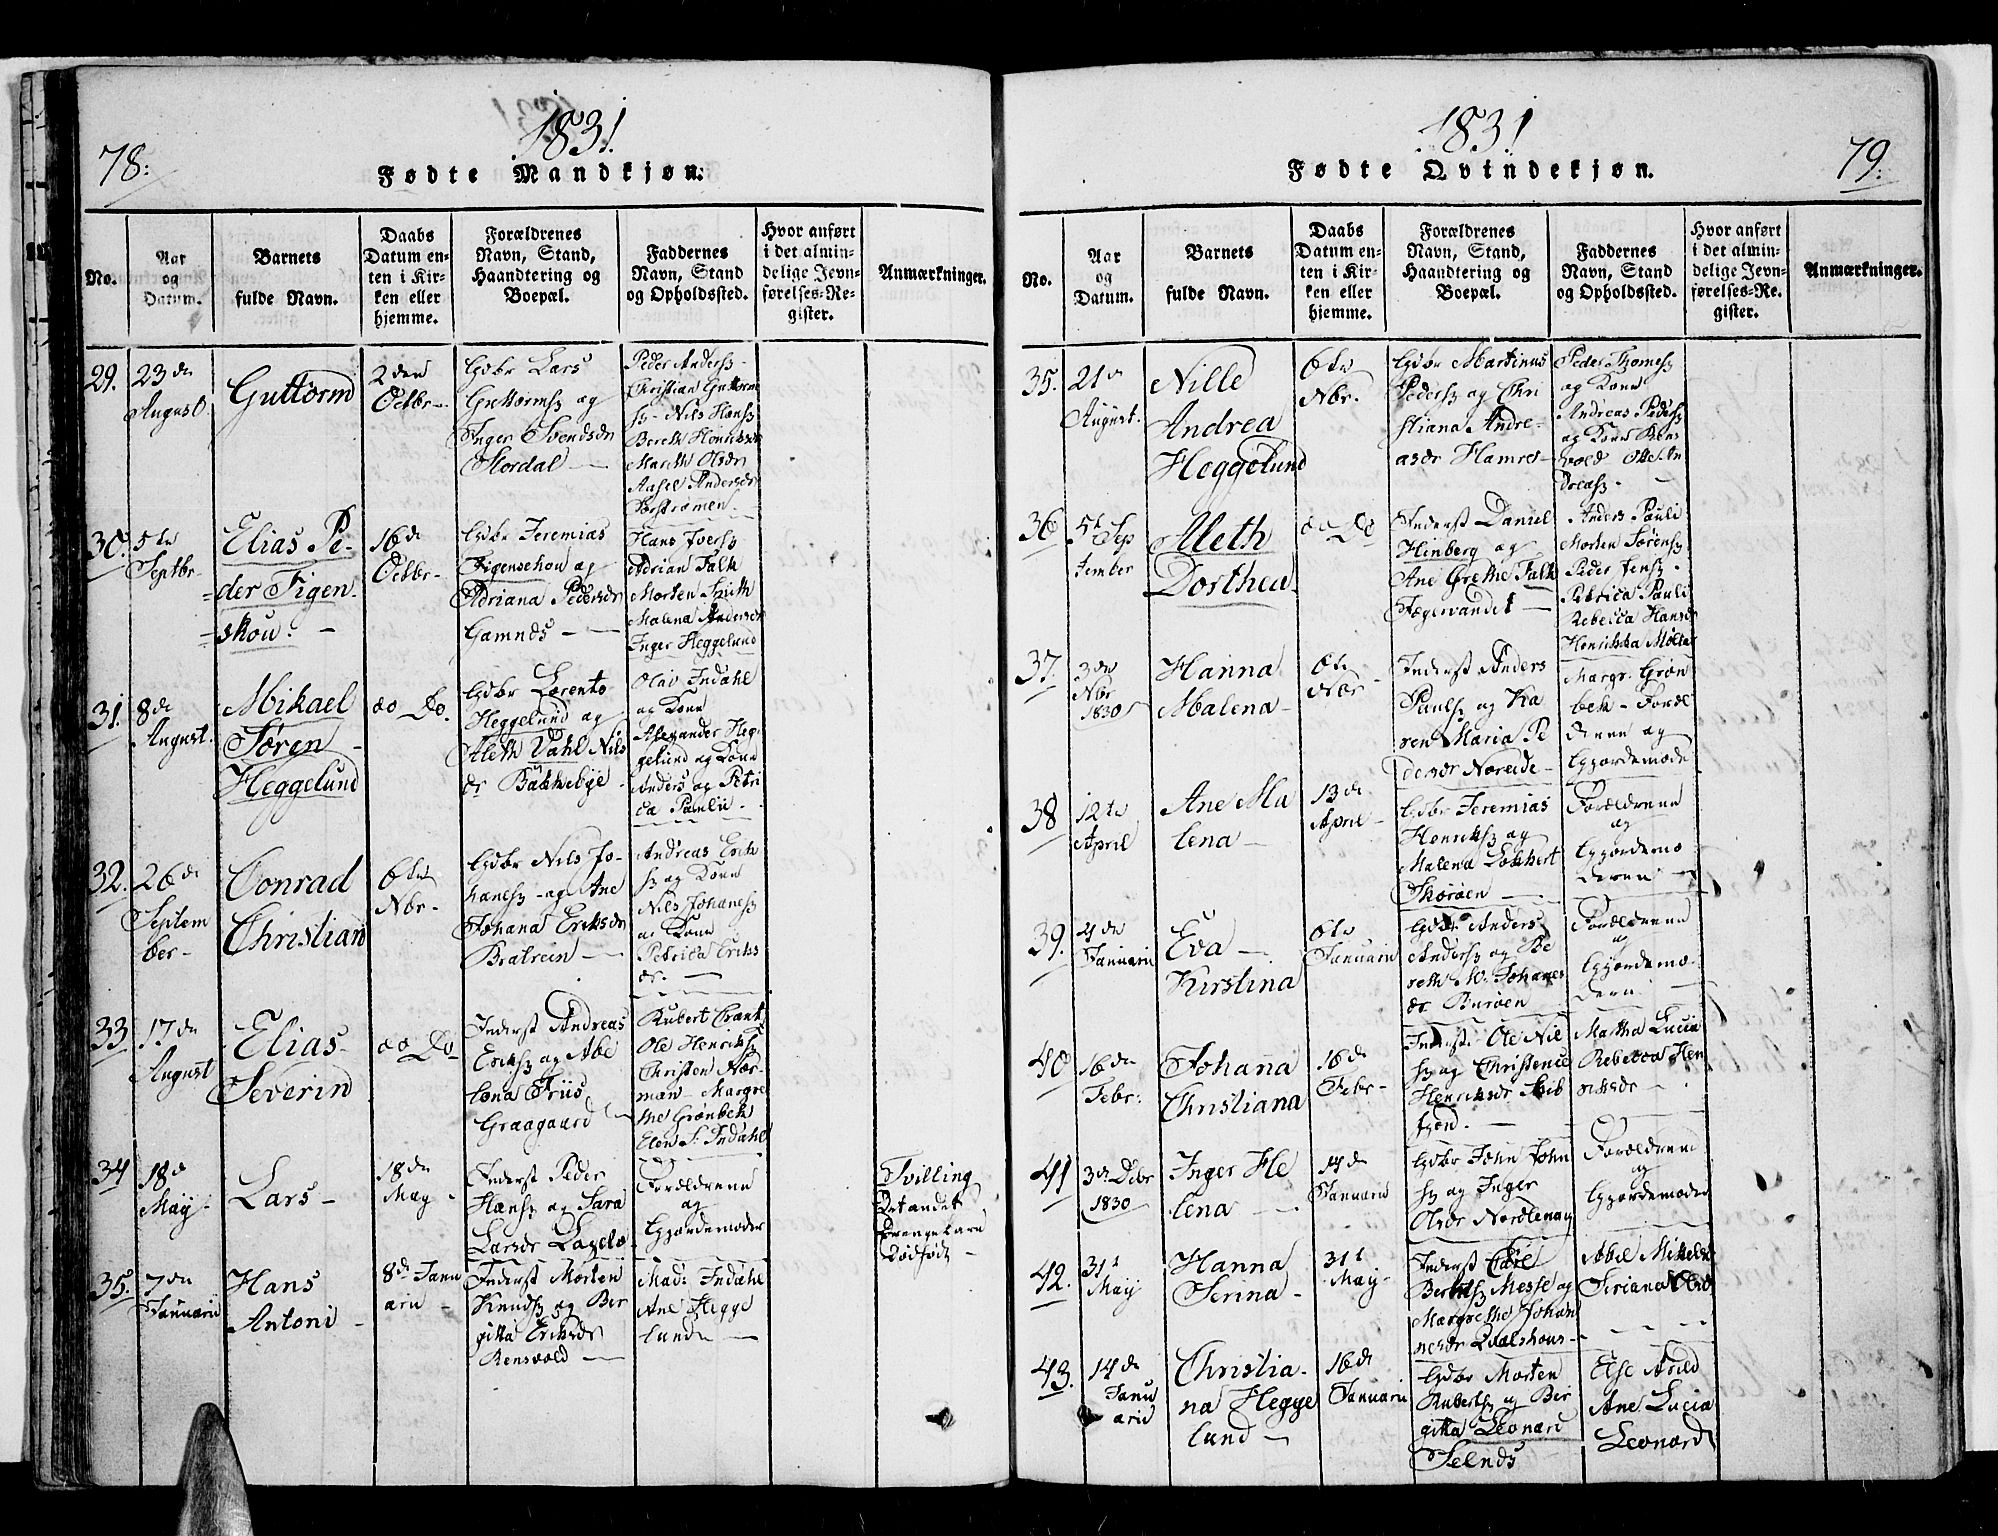 78.
1831
Fødte Mandkjøn.
No.
Aar
og
Datum.
Barnets
fulde Navn.
Daabs
Datum en-
ten i Kir-
ken eller
hjemme.
Forældrenes
Navn, Stand,
Haandtering og
Boepæl.
Faddernes
Navn, Stand
og Opholdssted.
Hvor anført
i det almin-
delige Jevn-
førelses-Re-
gister.
Anmærkninger.
29.
23de
August
Guttorm
2den
Octbr
Gdbr Lars
Guttormss og
Inger Svendsdr
Stordal
Peder Anderss
Christian Guttorm
ss - Nils Hanss
Bereth Henriksdr
Mareth Olsdr
Aasel Andersdr
30.
5te
Septbr
Elias Pe-
der Figen-
skou.
16de
Octbr
Gdbr Jeremias
Figenschou og
Adriana Pedersdr
Gamnæs
Hans Iverss
Adrian Falk
Morten Smith
Malena Andersdr
Inger Heggelund
31.
8de
August
Mikael
Søren
Heggelund
do Do.
Gdbr Lorents
Heggelund og
Aleth Dahl Nils
dr Bakkebye
Olav Indahl
og Kone
Alexander Heg-
gelund og Kone
Anders og Petri
ca Pauli
32.
26de
Septem
ber
Conrad
Christian
6te
Nbr
Gdbr Nils Jo-
hanss og Ane
Johana Eriksdr
Bratrein
Andreas Erik
ss og Kone
Nils Johaness
og Kone
Petrica Eriks
dr.
33
17de
August
Elias
Severin
do Do
Inderst Andreas
Erikss og Abe
lona Friis
Graagaard
Rubert Crant
Ole Henrikss
Christen Nor-
man - Margre
the Grønbek
Elen S. Indahl
34
18de
May
Lars
18de
May
Inderst Peder
Hanss og Sara
Larsdr
Forældrene
og
Gjordemoder
Tvilling
Det andet
Drengebarn
Dødfødt
35.
7de
Januarii
Hans
Antoni
8de Janu
arii
Inderst Morten
Knudss og Ber
gitta Eriksdr
Rensvold
Mad. Indahl
Ane Hegge
lund
79.
1831
Fødte Qvindekjøn.
No.
Aar
og
Datum.
Barnets
fulde Navn.
Daabs
Datum en-
ten i Kir-
ken eller
hjemme.
Forældrenes
Navn, Stand,
Haandtering og
Boepæl.
Faddernes
Navn, Stand
og Opholdssted.
Hvor anført
i det almin-
delige Jevn-
førelses-Re-
gister.
Anmærkninger.
35.
21de
August.
Nille
Andrea
Heggelund
6te
Nbr.
Gdbr Martinus
Pederss og Chri
stiana Andre-
asdr Hamre
Peder Thomess
og Kone
Andreas Pederss
og Kone Rens
vold Otte An
dreass
36
5te Sep
tember
Aleth
Dorthea
do Do
Inderst Daniel
Hinberg og
Ane Grethe Falk
Fagervandet
Anders Pauli
Morten Sørenss
Peder Jenss
Petrica Pauli
Rebecca Hansdr
Henrikka Møller
37.
3de
Nbr
1830
Hanna
Malena
6te
Nbr
Inderst Anders
Paulss og Ka
ren Maria Pe
dersdr Noreide
Margr. Grøn
bek - Foræl
drene og
Gjordemode
38
12te
April
Ane Ma
lena
13de
April
Gdbr Jeremias
Henrikss og
Malena Lokkert
Skorøen
Forældrene
og
Gjordemo
deren
39.
4de
Januarii
Eva
Kirstina
6te
Januarii
Gdbr Anders
Anderss og Be
reth M. Johanes
dr Burøen
Forældrene
og
Gjordemo-
deren
40
16de
Febr:
Johana
Christiana
16de
Febr
Inderst Ole Nil
ss og Christence
Henriksdr Skib
fjord.
Martha Lucia
Rebecca Hen
riksdr
41
3de Dcbr
1830
Inger He
lena
14de
Januarii
Gdbr John John
ss og Inger
Olsdr Nordlenay
Forældrene
og
Gjordemoder
42.
31t
May
Hanna
Serina
31t
May
Inderst Carl
Berntss Messe og
Margrethe Johan
nesdr Qvalshous
Abel Mikkelsdr
Siriana Olsdr
43.
14de
Janu
arii
Christia-
na Hegge
lund
16de
Januarii
Gdbr Morten
Rubertss og Ber
gitta Leonard
Selnæs
Else Arild
Ane Lucia
Leonard